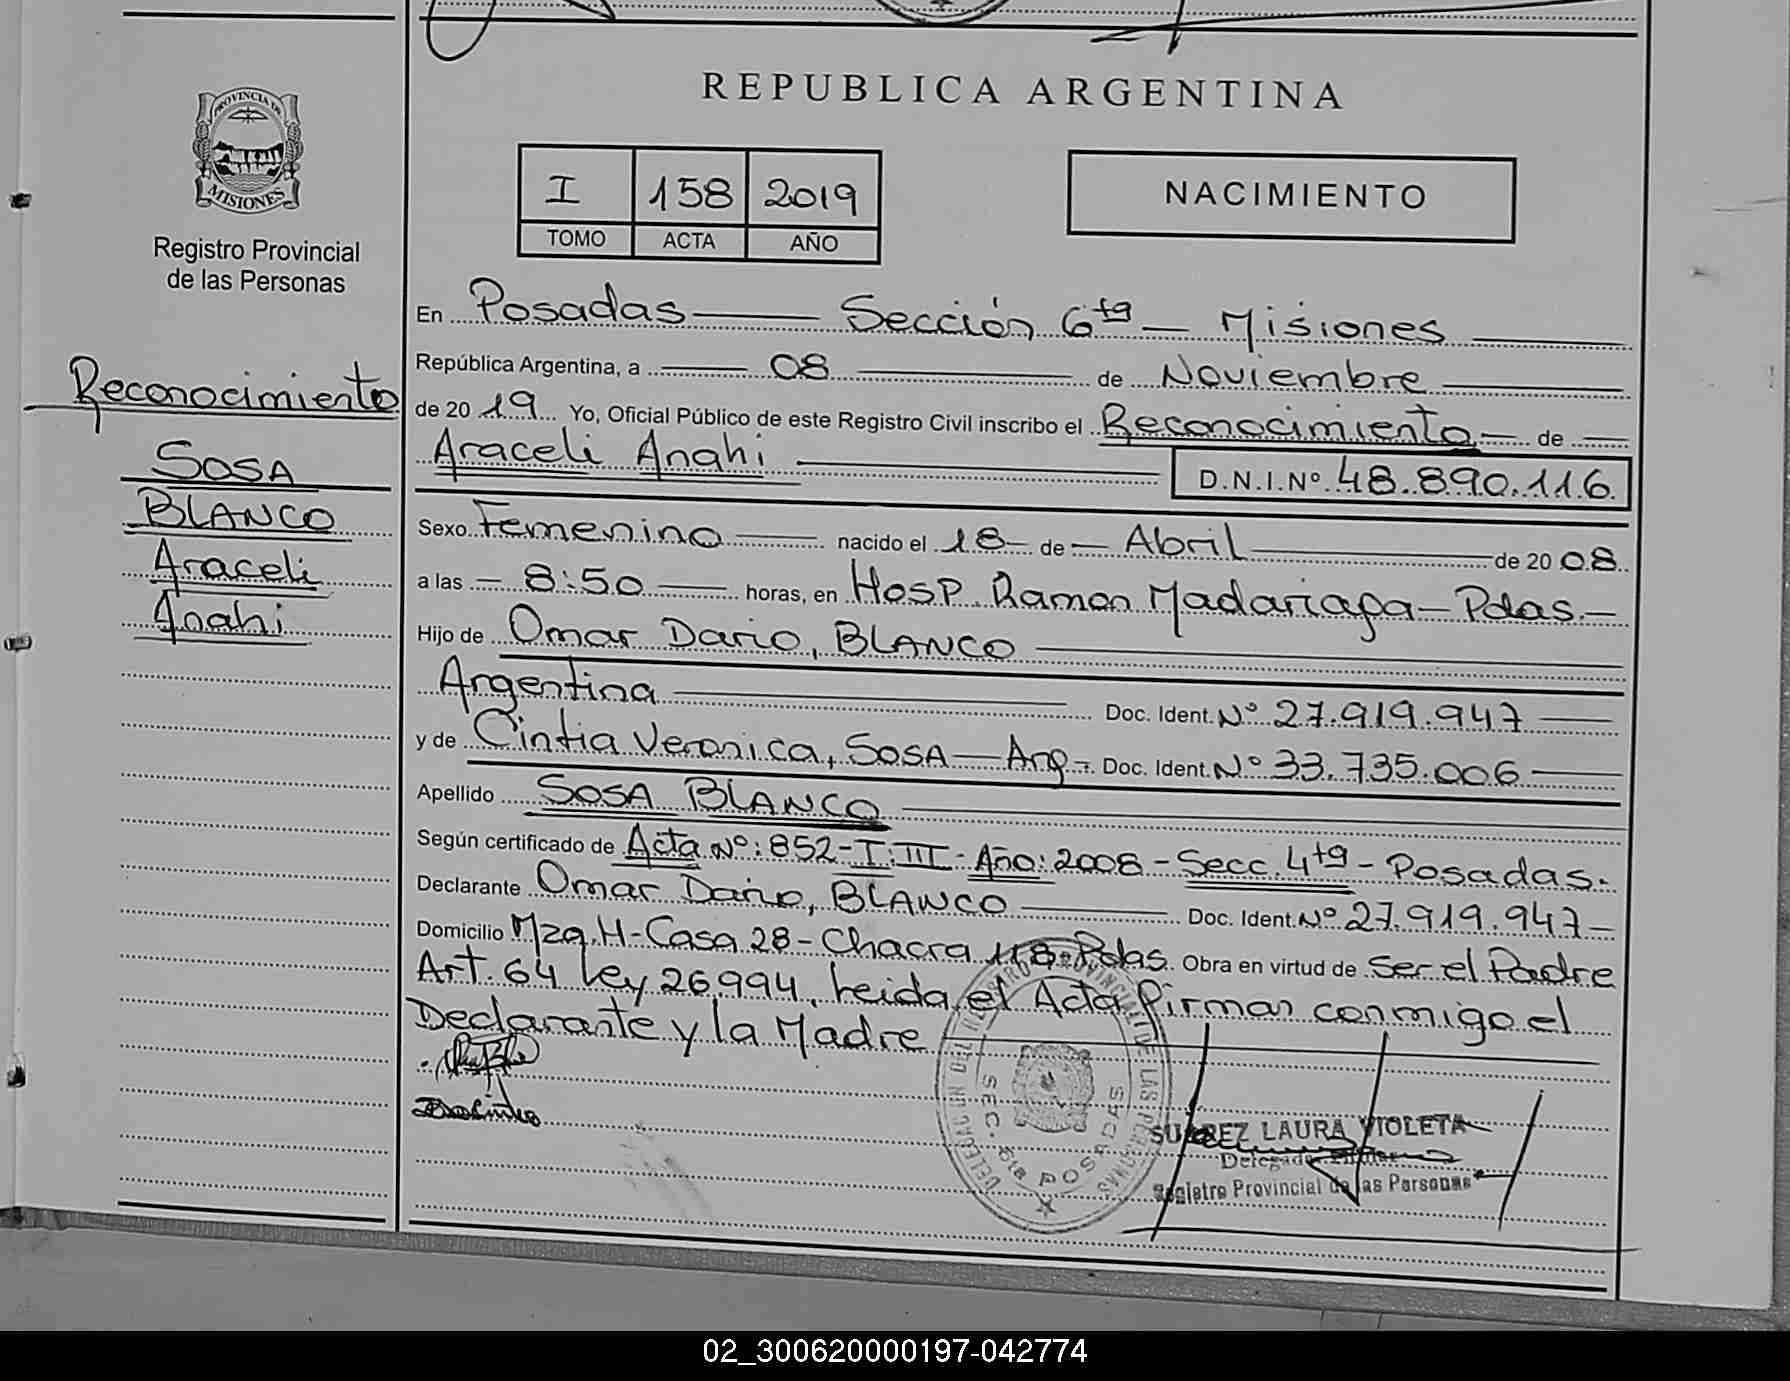 REPUBLICA ARGENTINA
PROVINCIA DE
MISIONES
Registro Provincial
de las Personas
I 158 2019
TOMO ACTA AÑO
NACIMIENTO
Reconocimiento
SOSA
BLANCO
Araceli
Anahi
En Posadas Sección 6ta Misiones
República Argentina, a 08 de Noviembre
de 2019 Yo, Oficial Público de este Registro Civil inscribo el Reconocimiento de
Araceli Anahi D.N.I.Nº 48.890.116
Sexo Femenino nacido el 18 de Abril de 2008
a las 8:50 horas, en Hosp. Ramon Madariaga - Pdas.
Hijo de Omar Dario, BLANCO
Argentina Doc. Ident. Nº 27.919.947
y de Cintia Veronica, SOSA - Arg. Doc. Ident. Nº 33.735.006
Apellido SOSA BLANCO
Según certificado de Acta Nº: 852 - T: III - Año: 2008 - Secc. 4ta - Posadas.
Declarante Omar Dario, BLANCO Doc. Ident. Nº 27.919.947
Domicilio Mza. H - Casa 28 - Chacra 118 - Pdas. Obra en virtud de Ser el Padre
Art. 64 Ley 26994, Leida el Acta firman conmigo el
Declarante y la Madre
SEC. 6ta POSADAS
SUAREZ LAURA VIOLETA
Delegada Titular
Registro Provincial de las Personas
02_300620000197-042774